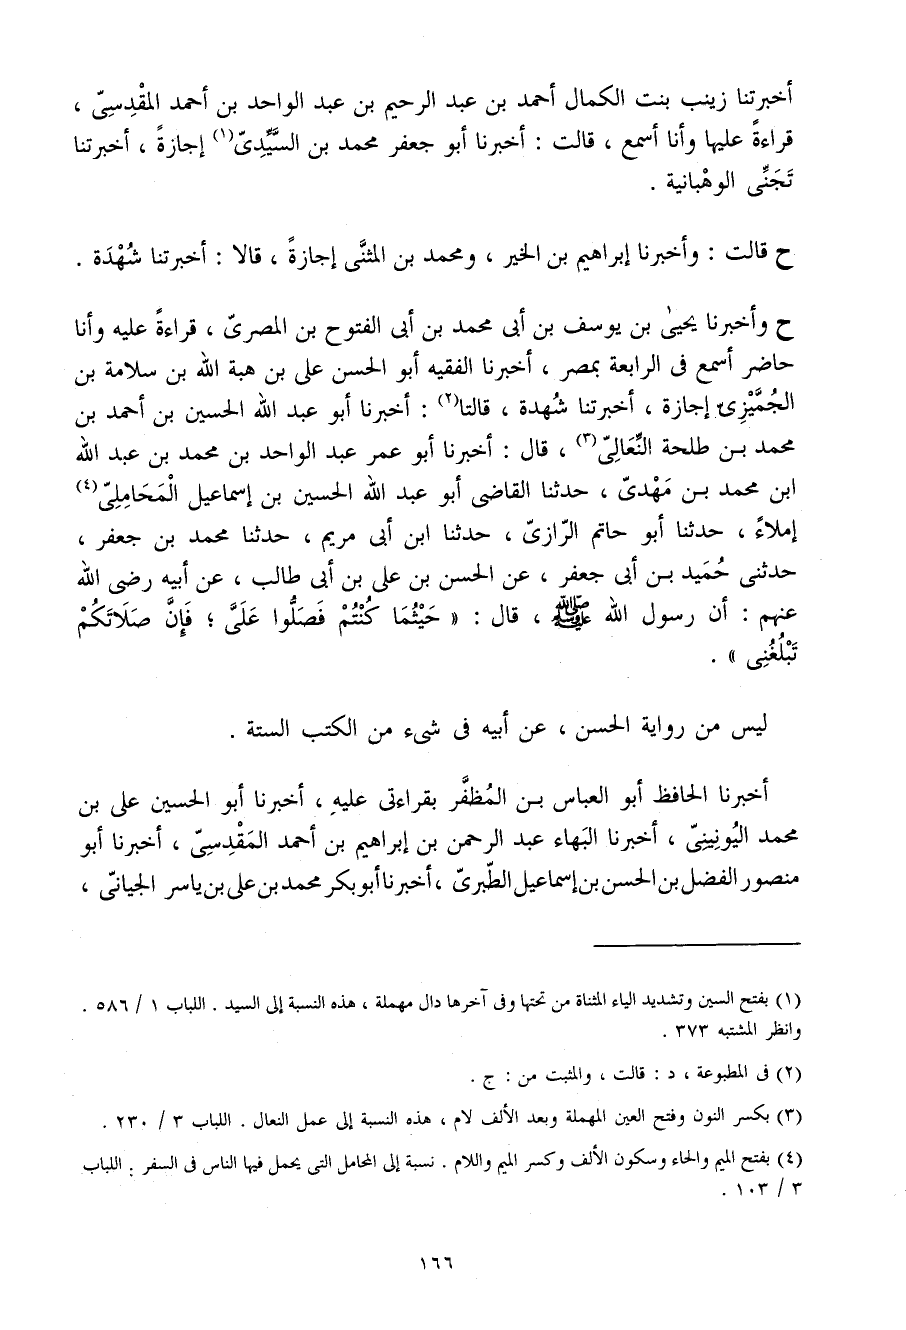 أخبرتنا زينب بنت الكمال أحمد بن عبد الرحيم بن عبد الواحد بن أحمد المقْدِسِىّ ،
قراءةً عليها وأنا أسمع ، قالت : أخبرنا أبو جعفر محمد بن السَّيِّدِىّ(١) إجازةً ، أخبرتنا
تَجَنِّى الوهْبانية .
ح قالت : وأخبرنا إبراهيم بن الخير ، ومحمد بن المثنَّى إجازةً ، قالا : أخبرتنا شُهْدَة .
ح وأخبرنا يحيىٰ بن يوسف بن أبى محمد بن أبى الفتوح بن المصرىّ ، قراءةً عليه وأنا
حاضر أسمع فى الرابعة بمصر ، أخبرنا الفقيه أبو الحسن على بن هبة الله بن سلامة بن
الجُمَّيْزِىّ إجازة ، أخبرتنا شُهدة ، قالتا(٢) : أخبرنا أبو عبد الله الحسين بن أحمد بن
محمد بن طلحة النِّعَالِىّ(٣) ، قال : أخبرنا أبو عمر عبد الواحد بن محمد بن عبد الله
ابن محمد بن مَهْدىّ ، حدثنا القاضى أبو عبد الله الحسين بن إسماعيل الْمَحَامِلِىّ(٤)
إملاءً ، حدثنا أبو حاتم الرّازىّ ، حدثنا ابن أبى مريم ، حدثنا محمد بن جعفر ،
حدثنى حُمَيد بن أبى جعفر ، عن الحسن بن على بن أبى طالب ، عن أبيه رضى الله
عنهم : أن رسول الله ﷺ ، قال : « حَيْثُمَا كُنْتُمْ فَصَلُّوا عَلَىَّ ؛ فَإِنَّ صَلَاتَكُمْ
تَبْلُغُنِى » .
ليس من رواية الحسن ، عن أبيه فى شىء من الكتب الستة .
أخبرنا الحافظ أبو العباس بن المُظفَّر بقراءتى عليهِ ، أخبرنا أبو الحسين على بن
محمد اليُونِينِىّ ، أخبرنا البَهاء عبد الرحمن بن إبراهيم بن أحمد المَقْدِسِىّ ، أخبرنا أبو
منصور الفضل بن الحسن بن إسماعيل الطّبرىّ ، أخبرنا أبو بكر محمد بن على بن ياسر الجيانىّ ،
(١) بفتح السين وتشديد الياء المثناة من تحتها وفى آخرها دال مهملة ، هذه النسبة إلى السيد . اللباب ١ / ٥٨٦ .
وانظر المشتبه ٣٧٣ .
(٢) فى المطبوعة ، د : قالت ، والمثبت من : ج .
(٣) بكسر النون وفتح العين المهملة وبعد الألف لام ، هذه النسبة إلى عمل النعال . اللباب ٣ / ٢٣٠ .
(٤) بفتح الميم والحاء وسكون الألف وكسر الميم واللام . نسبة إلى المحامل التى يحمل فيها الناس فى السفر . اللباب
٣ / ١٠٣ .
١٦٦